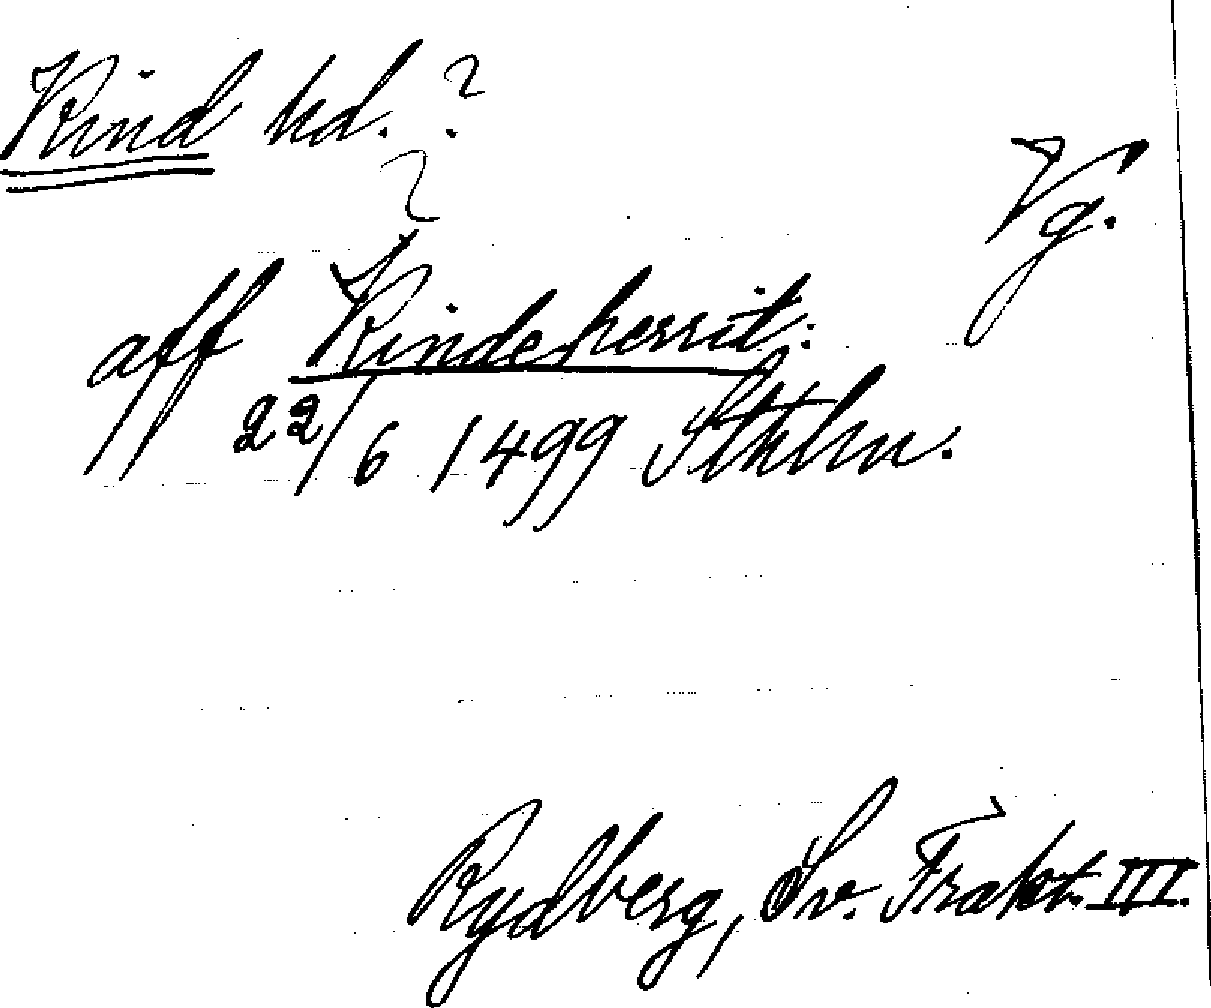 Kind hd. ?
Vg.
?
aff Kindeherrit:
22/6 1499 Sthlm.
Rydberg, Sv. Trakt. III.